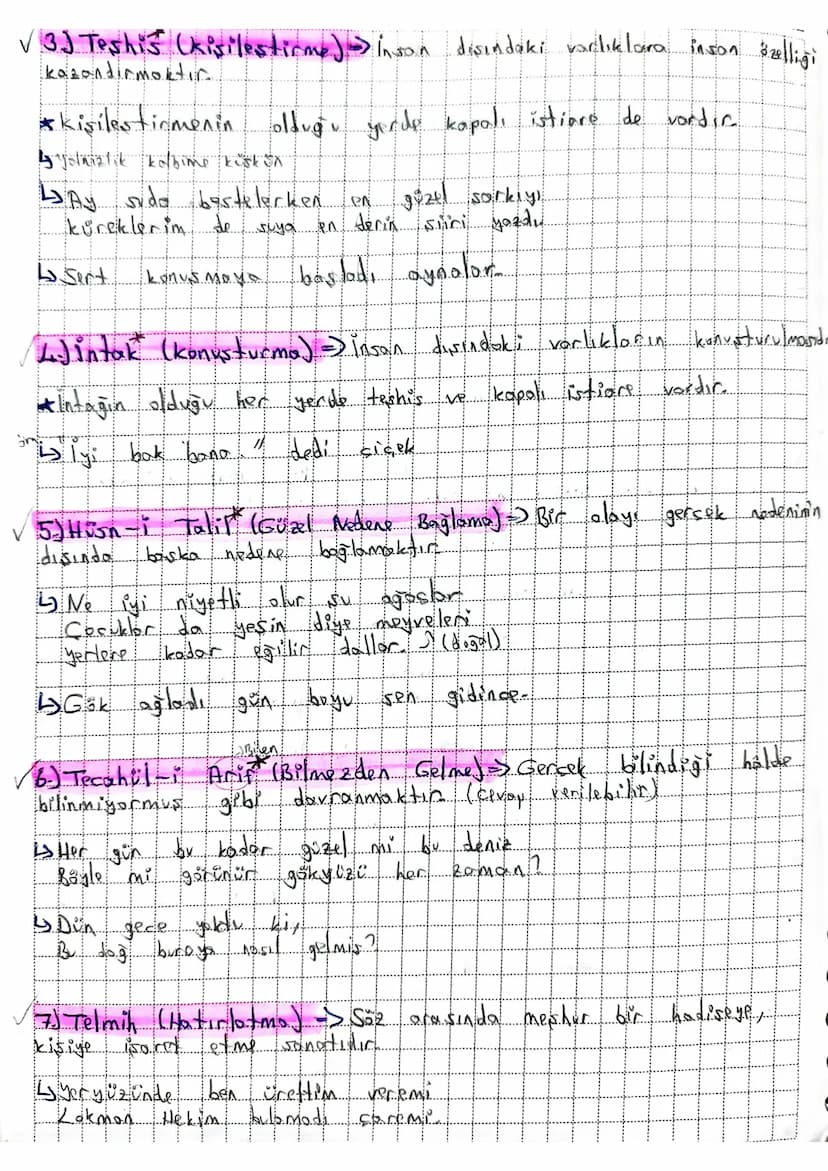 ✓ 3.) Teshis* (kişileştirme) => İnsan dışındaki varlıklara insan özelliği
kazandırmaktır.
* Kişileştirmenin olduğu yerde kapalı istiare de vardır.
↳ Yalnızlık kalbime küskün
↳ Ay suda bestelerken en güzel şarkıyı
küreklerim de suya en derin şiiri yazdı
↳ Sert konuşmaya başladı aynalar.
✓ 4.) İntak* (Konuşturma) => İnsan dışındaki varlıkların konuşturulmasıdı
* İntağın olduğu her yerde teşhis ve kapalı istiare vardır.
↳ "İyi bak bana." dedi çiçek
✓ 5.) Hüsn-i Talil* (Güzel Nedene Bağlama) => Bir olayı gerçek nedeninin
dışında başka nedene bağlamaktır.
↳ Ne iyi niyetli olur şu ağaçlar
Çocuklar da yesin diye meyveleri
yerlere kadar eğilir dallar. (doğal)
↳ Gök ağladı gün boyu sen gidince.
Bilen
✓ 6.) Tecahül-i Arif* (Bilmezden Gelme) => Gerçek bilindiği hâlde
bilinmiyormuş gibi davranmaktır. (Cevap verilebilir)
↳ Her gün bu kadar güzel mi bu deniz
Böyle mi görünür gökyüzü her zaman?
↳ Dün gece yoktu ki,
Bu dağ buraya nasıl gelmiş?
✓ 7.) Telmih (Hatırlatma) => Söz arasında meşhur bir hadiseye,
kişiye işaret etme sanatıdır.
↳ Yeryüzünde ben ürettim veremi
Lokman Hekim bulamadı çaremi.